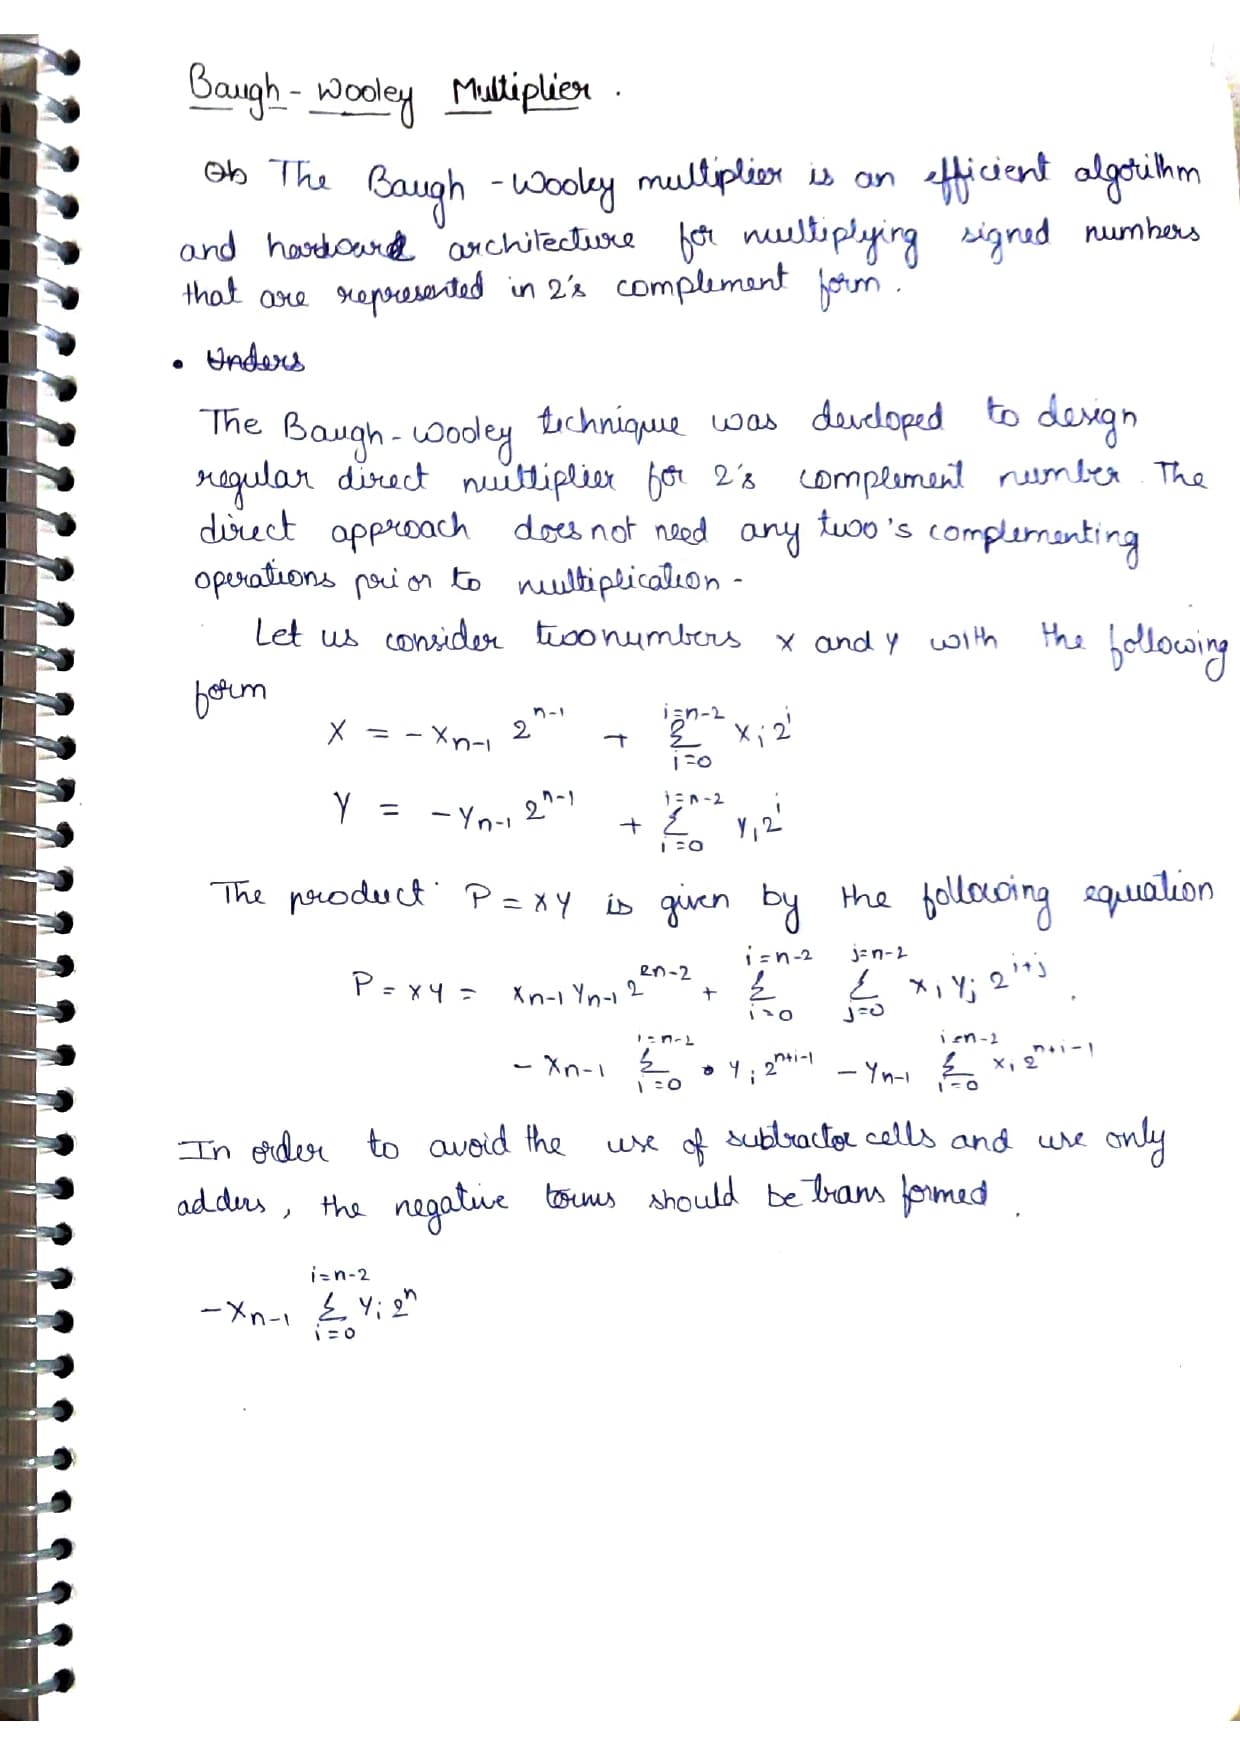 Baugh - Wooley Multiplier .
The Baugh - Wooley multiplier is an efficient algorithm
and hardware architecture for multiplying signed numbers
that are represented in 2's complement form .
• Unders
The Baugh - Wooley technique was developed to design
regular direct multiplier for 2's complement number . The
direct approach does not need any two's complementing
operations prior to multiplication -
Let us consider two numbers x and y with the following
form
X = - x_{n-1} 2^{n-1} + Σ_{i=0}^{i=n-2} x_i 2^i
Y = - y_{n-1} 2^{n-1} + Σ_{i=0}^{i=n-2} y_i 2^i
The product P = xy is given by the following equation
P = xy = x_{n-1} y_{n-1} 2^{2n-2} + Σ_{i=0}^{i=n-2} Σ_{j=0}^{j=n-2} x_i y_j 2^{i+j} .
- x_{n-1} Σ_{i=0}^{i=n-2} y_i 2^{n+i-1} - y_{n-1} Σ_{i=0}^{i=n-2} x_i 2^{n+i-1}
In order to avoid the use of subtractor cells and use only
adders , the negative terms should be transformed .
- x_{n-1} Σ_{i=0}^{i=n-2} y_i 2^n